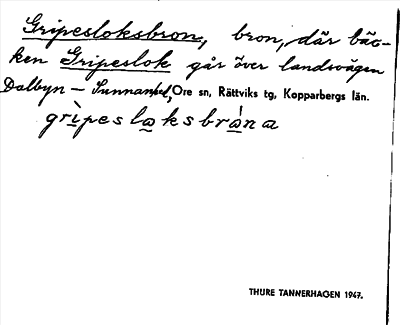 Gripesloksbron, bron, där bäc-
ken Gripeslok går över landsvägen
Dalbyn — Sunnanhed, Ore sn, Rättviks tg, Kopparbergs län.
grìpeslaksbrána
THURE TANNERHAGEN 1947.